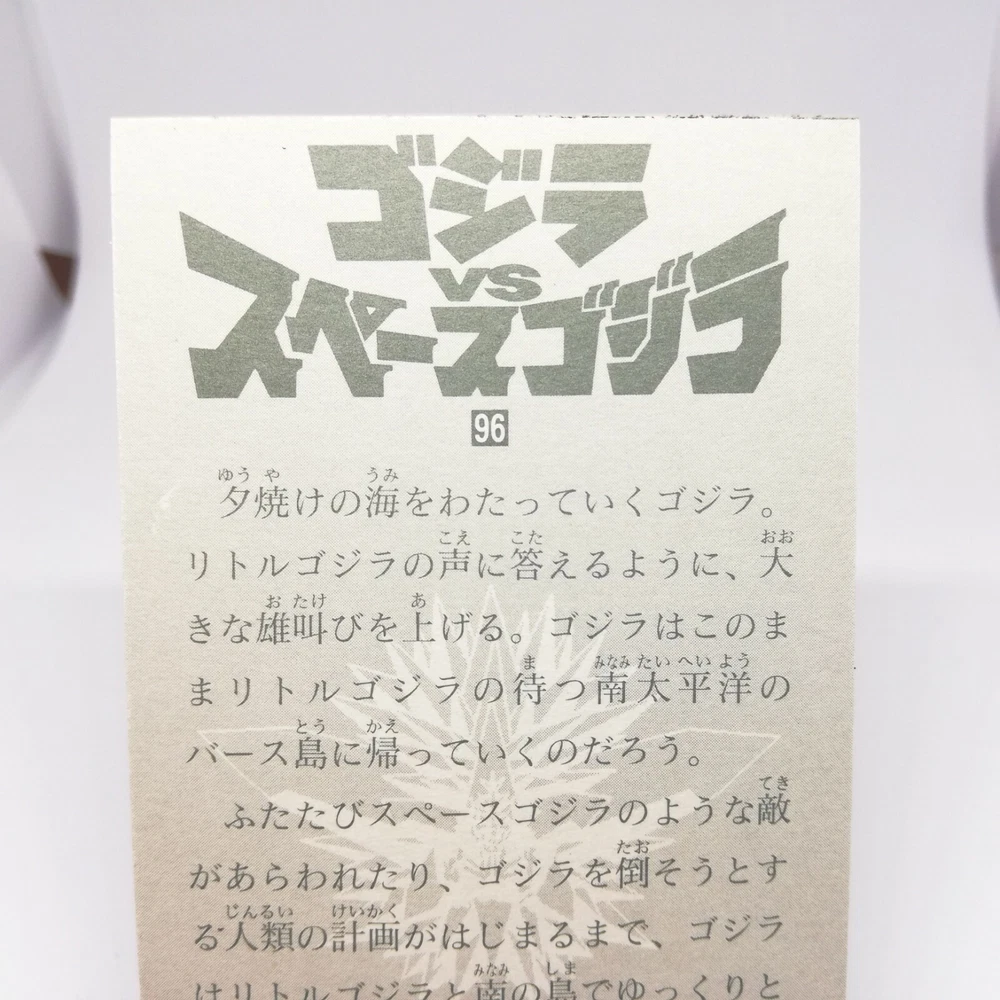 ゴジラ
VS
スペースゴジラ
96
夕焼けの海をわたっていくゴジラ。
リトルゴジラの声に答えるように、大
きな雄叫びを上げる。ゴジラはこのま
まリトルゴジラの待つ南太平洋の
バース島に帰っていくのだろう。
ふたたびスペースゴジラのような敵
があらわれたり、ゴジラを倒そうとす
る人類の計画がはじまるまで、ゴジラ
はリトルゴジラと南の島でゆっくりと